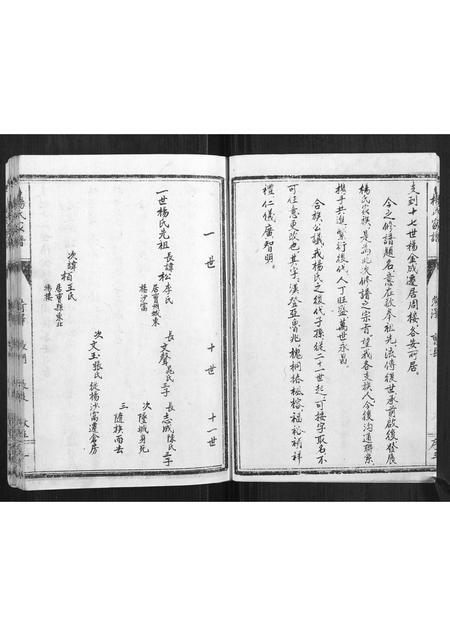 楊氏家譜
支到十七世楊金成遷居周樓各安所居。
今之修譜題名意在啟奉祖先流傳後世承前啟後發展
楊氏家族是為此次修譜之宗旨望我各支族人今後溝通聯系
攜手共進繁衍後代人丁旺盛萬世永昌。
合族公議我楊氏之後代子孫從二十一世起可按字取名不
可任意更改也其字：漢登亞魯兆槐桐椿松榕福裕禎祥
禮仁儀廣智明。
一世 十世 十一世
一世楊氏先祖
長諱松李氏
居曹州城東
楊沙窩
長文聲葛氏三子
長志成陳氏三子
次陸城身死
三隨族而去
次文玉張氏從楊沙窩遷倉房
次諱栢王氏
居曹縣東北
楊樓
楊氏家譜